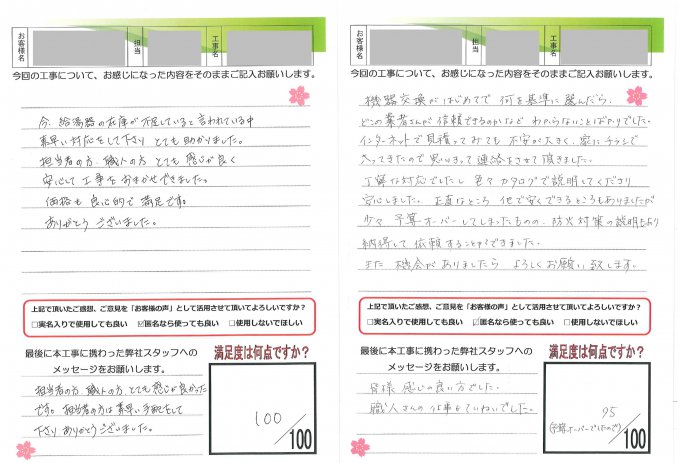 お客様名
担当
工事名
今回の工事について、お感じになった内容をそのままご記入お願いします。
今、給湯器の在庫が不足していると言われている中
素早い対応をして下さりとても助かりました。
担当者の方、職人の方とても感じが良く
安心して工事をおまかせできました。
価格も良心的で満足です。
ありがとうございました。
上記で頂いたご感想、ご意見を「お客様の声」として活用させて頂いてよろしいですか？
□実名入りで使用しても良い ☑匿名なら使っても良い □使用しないでほしい
最後に本工事に携わった弊社スタッフへの
メッセージをお願いします。
担当者の方、職人の方、とても感じが良かった
です。担当者の方は素早い手配をして
下さりありがとうございました。
満足度は何点ですか？
100/100
お客様名
担当
工事名
今回の工事について、お感じになった内容をそのままご記入お願いします。
機器交換がはじめてで何を基準に選んだら、
どこの業者さんが信頼できるのかなどわからないことばかりでした。
インターネットで見積ってみても不安が大きく、家にチラシで
入ってきたので思いきって連絡をさせて頂きました。
丁寧な対応でしたし色々カタログで説明してくださり
安心しました。正直なところ他で安くできるところもありましたが
少々予算オーバーしてしまったものの、防火対策の説明もあり
納得して依頼することができました。
また機会がありましたらよろしくお願い致します。
上記で頂いたご感想、ご意見を「お客様の声」として活用させて頂いてよろしいですか？
□実名入りで使用しても良い ☑匿名なら使っても良い □使用しないでほしい
最後に本工事に携わった弊社スタッフへの
メッセージをお願いします。
皆様感じの良い方でした。
職人さんの仕事もていねいでした。
満足度は何点ですか？
95/100
(予算オーバーでしたので)